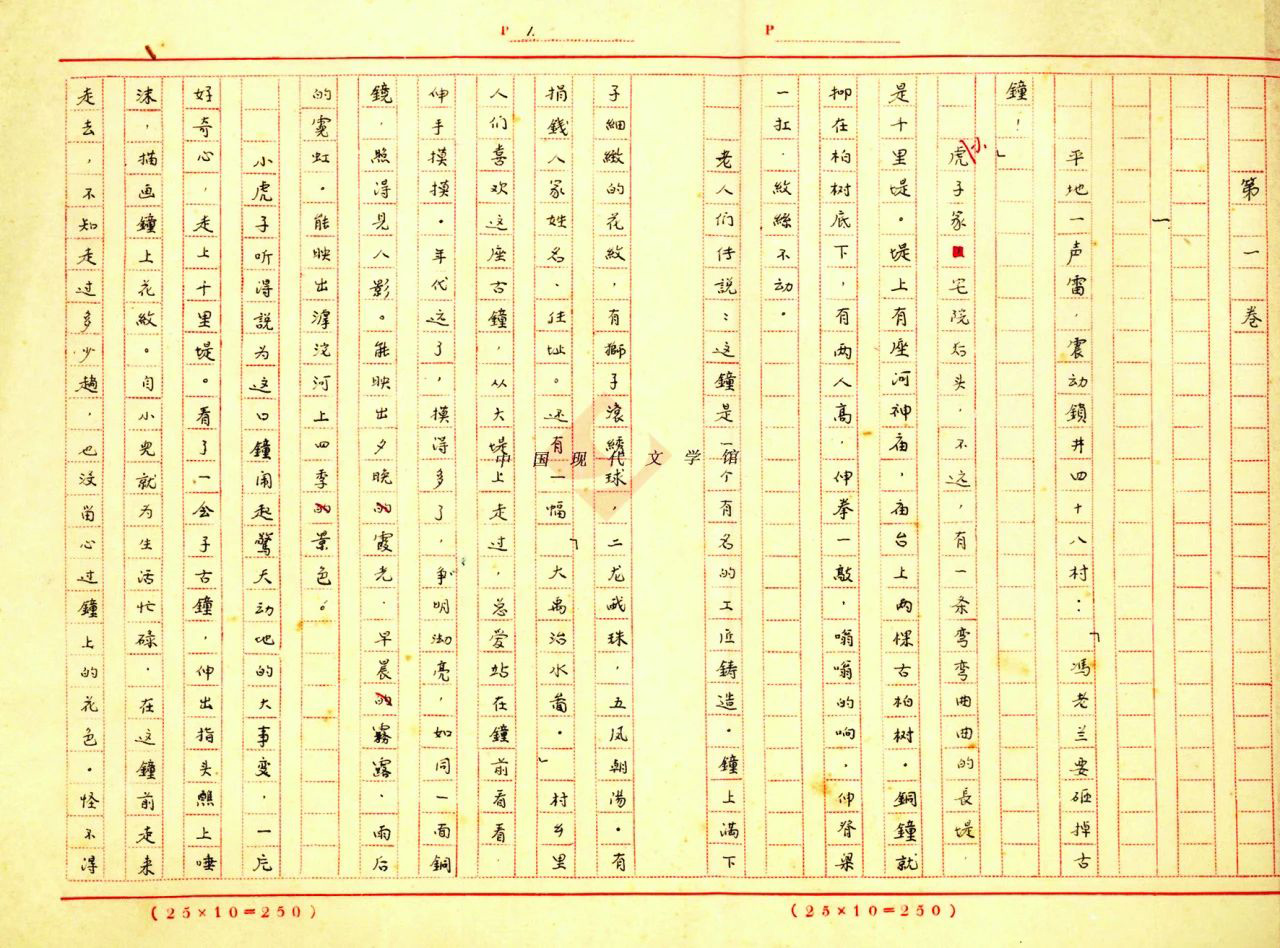 P 1
P
第一卷
一
平地一声雷，震动鎖井四十八村：「馮老兰要砸掉古
鐘！」
小虎子家宅院后头，不远，有一条弯弯曲曲的長堤，
是十里堤。堤上有座河神庙，庙台上两棵古柏树。銅鐘就
抑在柏树底下，有两人高，伸拳一敲，嗡嗡的响，伸脊梁
一扛，紋絲不动。
老人们传説：这鐘是一个有名的工匠鋳造。鐘上满下
子細緻的花紋，有獅子滾綉球，二龙戏珠，五凤朝陽。有
捐錢人家姓名、住址。还有一幅「大禹治水啚。」村乡里
人们喜欢这座古鐘，从大堤上走过，总爱站在鐘前看看，
伸手摸摸。年代远了，摸得多了，争明沏亮，如同一面銅
鏡，照得見人影。能映出夕晚的霞光，早晨的霧露，雨后
的霓虹。能映出滹沱河上四季的景色。
小虎子听得説为这口鐘闹起驚天动地的大事变，一片
好奇心，走上十里堤。看了一会子古鐘，伸出指头蘸上唾
沫，描画鐘上花紋。自小兒就为生活忙碌，在这鐘前走来
走去，不知走过多少趟，也没畄心过鐘上的花色。怪不得
中国现代文学馆
(25×10=250)
(25×10=250)